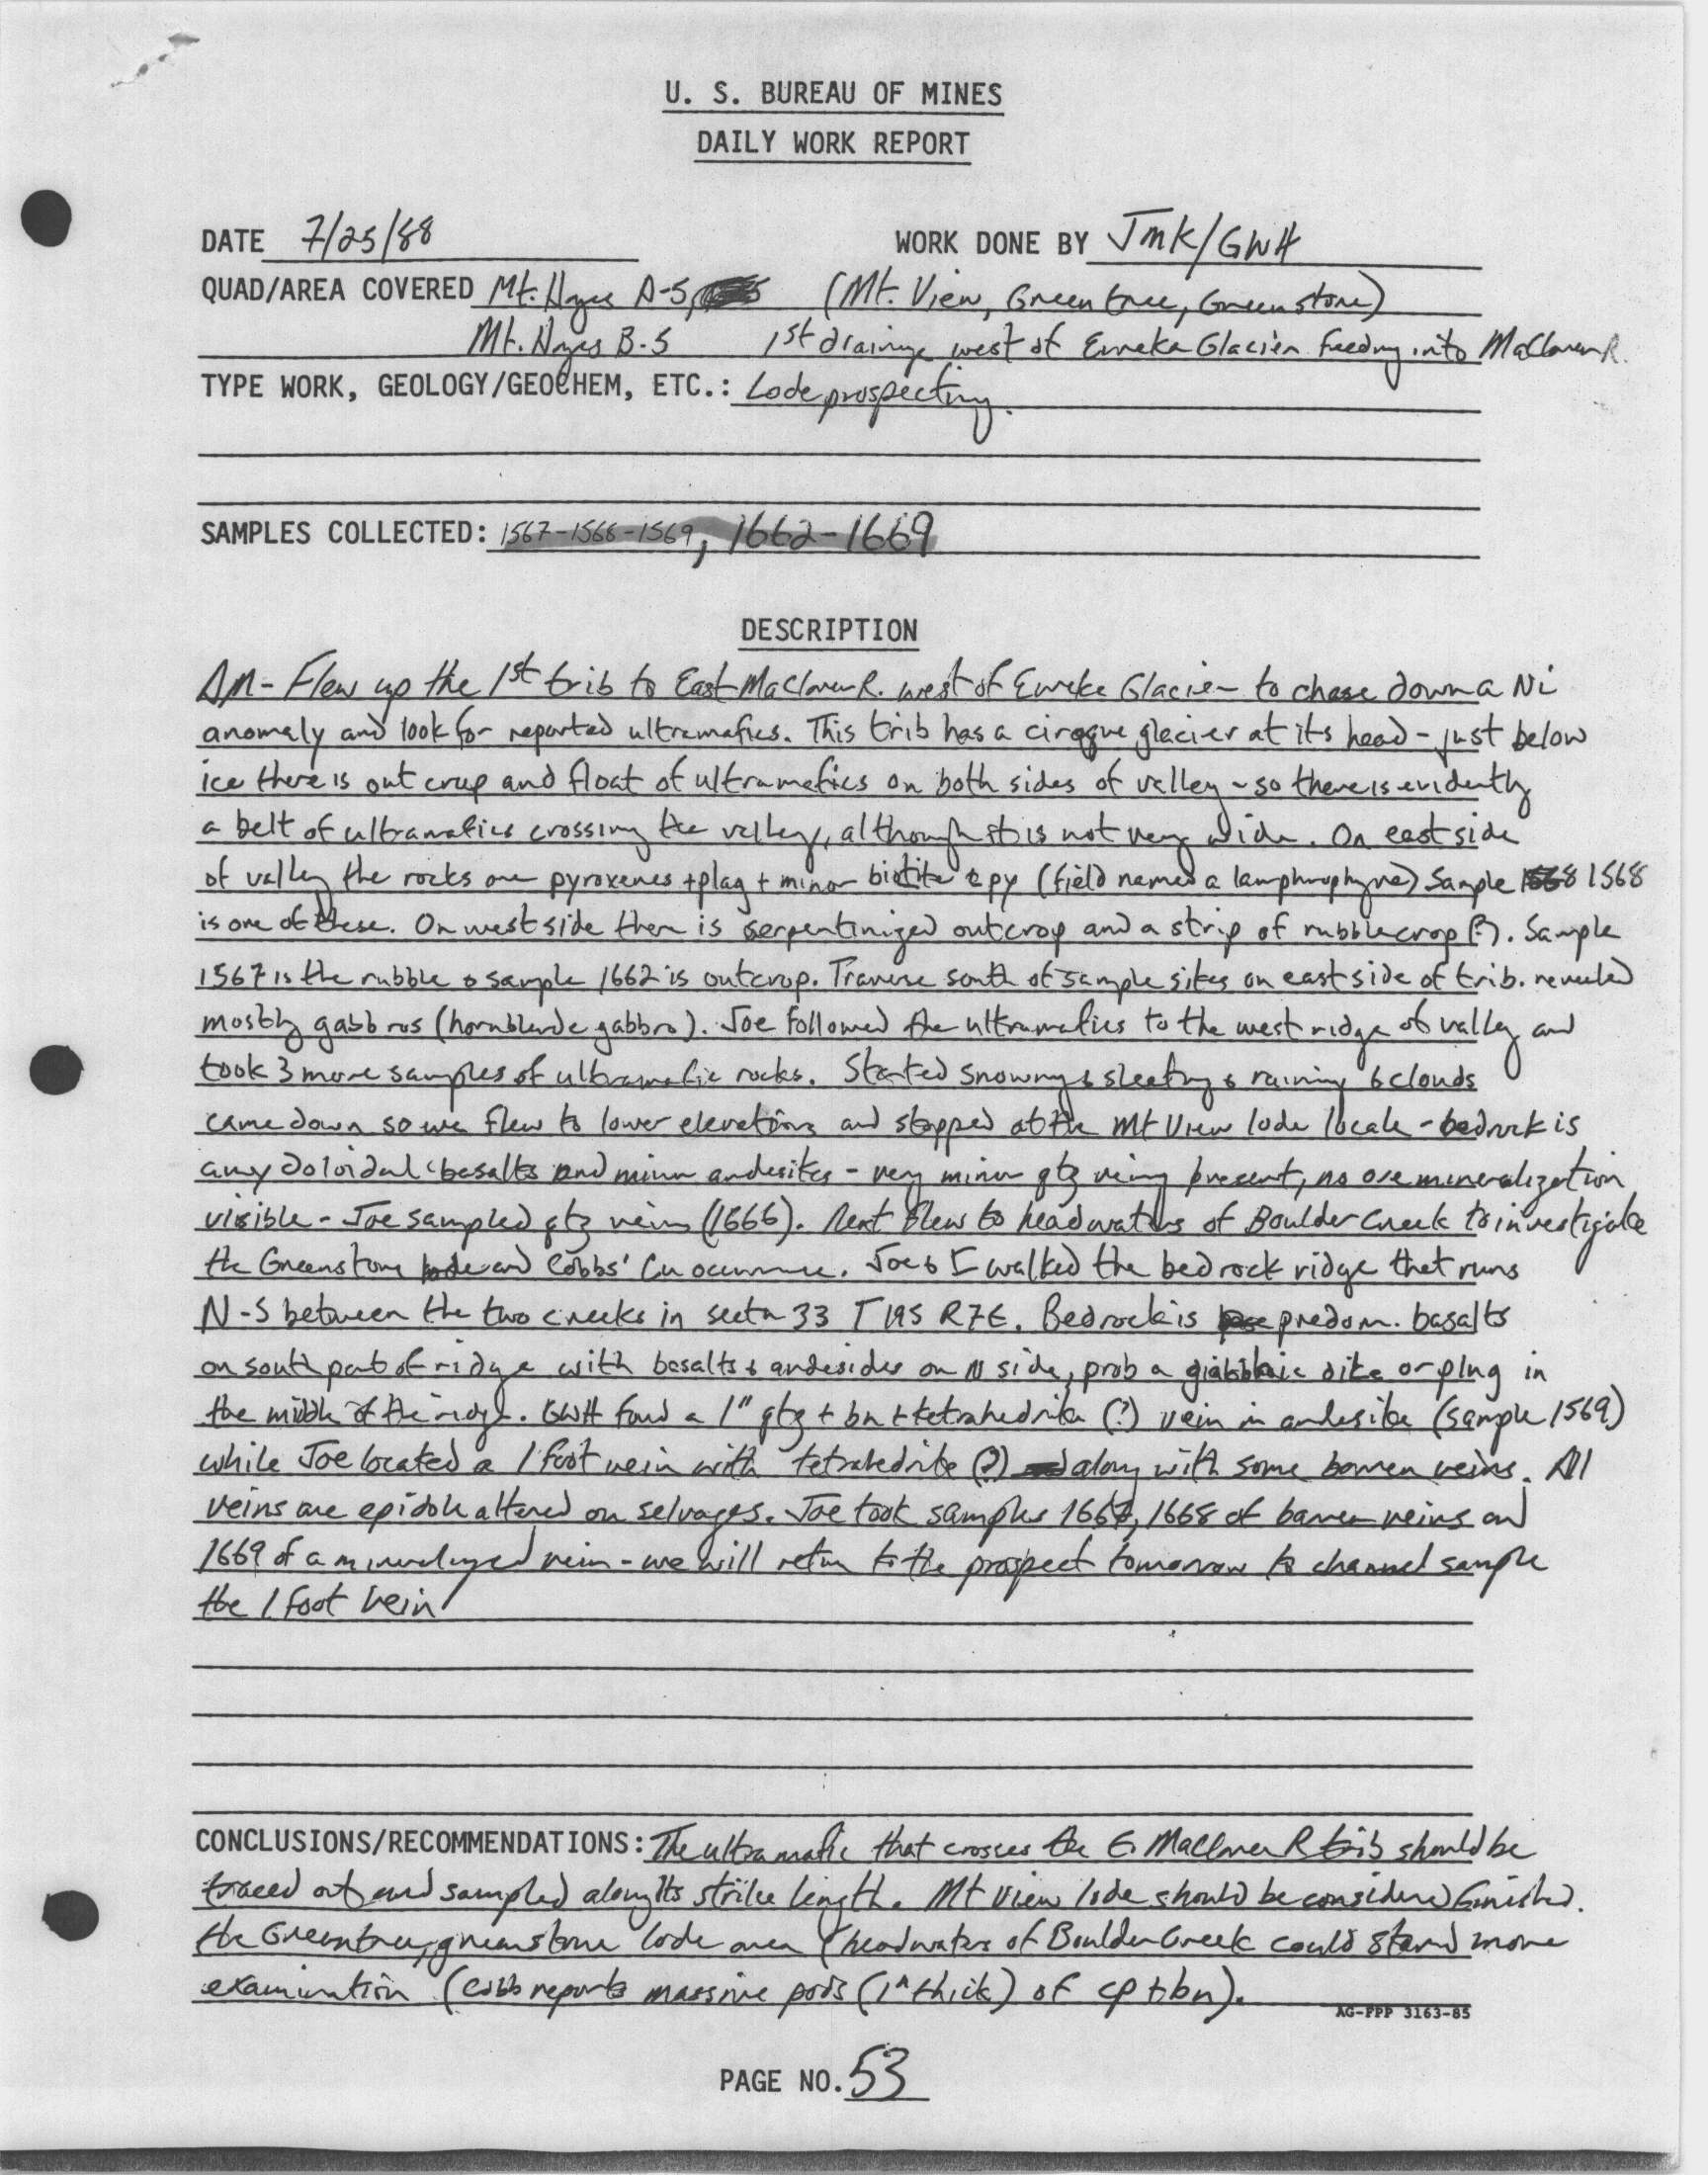 U. S. BUREAU OF MINES
DAILY WORK REPORT
DATE 7/25/88 WORK DONE BY JMK/GWH
QUAD/AREA COVERED Mt. Hayes A-5, (Mt. View, Greentree, Greenstone)
Mt. Hayes B-5 1st drainage west of Eureka Glacier feeding into Maclaren R.
TYPE WORK, GEOLOGY/GEOCHEM, ETC.: Lode prospecting.
SAMPLES COLLECTED: 1567-1568-1569, 1662-1669
DESCRIPTION
AM- Flew up the 1st trib to East Maclaren R. west of Eureka Glacier to chase down a Ni
anomaly and look for reported ultramafics. This trib has a cirque glacier at its head - just below
ice there is out crop and float of ultramafics on both sides of valley - so there is evidently
a belt of ultramafics crossing the valley, although it is not very wide. On east side
of valley the rocks are pyroxenes + plag + minor biotite & py (field named a lamphrophyre) Sample 1568
is one of these. On west side there is serpentinized outcrop and a strip of rubblecrop (?). Sample
1567 is the rubble & sample 1662 is outcrop. Traverse south of sample sites on east side of trib. revealed
mostly gabbros (hornblende gabbro). Joe followed the ultramafics to the west ridge of valley and
took 3 more samples of ultramafic rocks. Started snowing & sleeting & raining & clouds
came down so we flew to lower elevations and stopped at the Mt View lode locale - bedrock is
amydoloidal basalts and minor andesites - very minor qtz veing present, no ore mineralization
visible - Joe sampled qtz veins (1666). Next flew to headwaters of Boulder Creek to investigate
the Greenstone lode and Cobbs' Cu occurrence. Joe & I walked the bedrock ridge that runs
N-S between the two creeks in sectn 33 T19S R7E. Bedrock is predom. basalts
on south part of ridge with basalts & andesides on N side, prob a gabbroic dike or plug in
the middle of the ridge. GWH found a 1" qtz + bn + tetrahedrite (?) vein in andesite (sample 1569)
while Joe located a 1 foot vein with tetrahedrite (?) along with some barren veins. All
veins are epidote altered on selvages. Joe took samples 1667, 1668 of barren veins and
1669 of a mineralized vein - we will return to the prospect tomorrow to channel sample
the 1 foot vein
CONCLUSIONS/RECOMMENDATIONS: The ultramafic that crosses the E. Maclaren R trib should be
traced out and sampled along its strike length. Mt View lode should be considered finished.
the Greentree, greenstone lode area (headwaters of Boulder Creek could stand more
examination (Cobb reports massive pods (1" thick) of cp + bn).
AG-FPP 3163-85
PAGE NO. 53